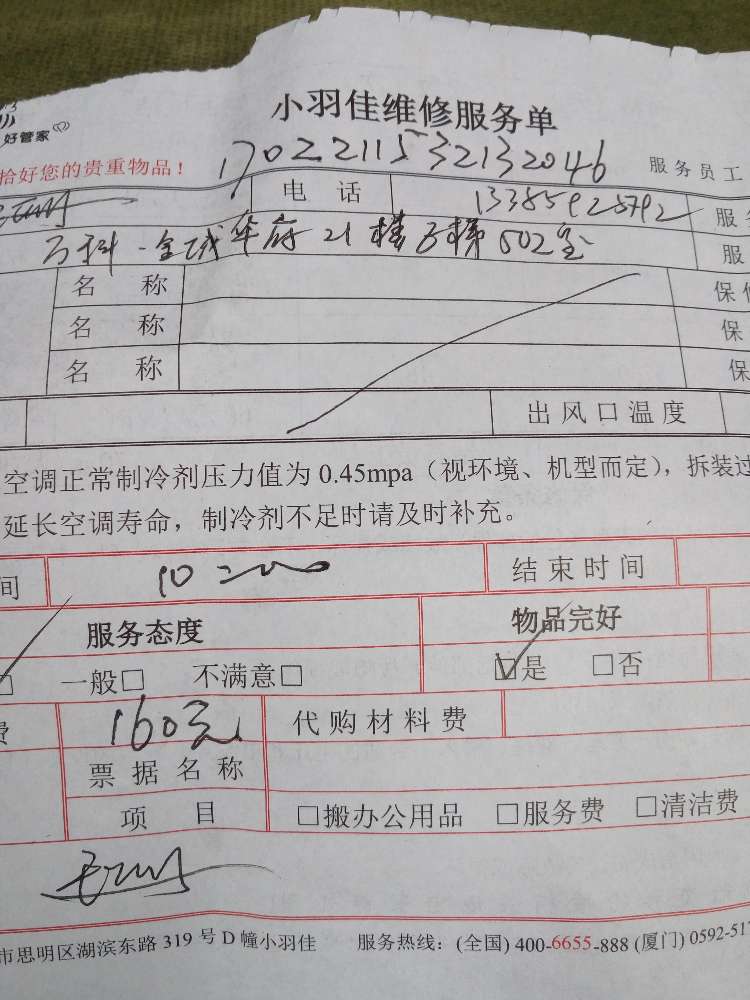 小羽佳维修服务单
好管家
拾好您的贵重物品！ 1702211532132046 服务员工
电 话 13385925792 服务
万科·金域华府21楼3梯502室 服
名 称 保修
名 称 保
名 称 保
出风口温度
空调正常制冷剂压力值为0.45mpa（视环境、机型而定），拆装过
延长空调寿命，制冷剂不足时请及时补充。
间 10 结束时间
服务态度 物品完好
□ 一般□ 不满意□ ☑是 □否
费 160元 代购材料费
票据名称
项 目 □搬办公用品 □服务费 □清洁费
市思明区湖滨东路 319 号 D 幢小羽佳 服务热线：(全国) 400-6655-888 (厦门) 0592-517